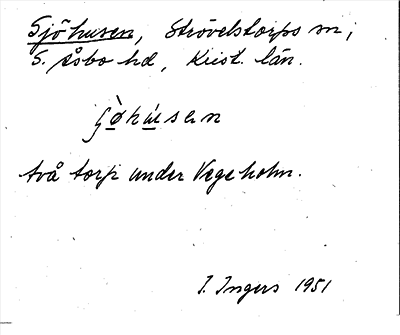 Sjöhusen, Strövelstorps sn,
S. Åsbo hd, Krist. län.
ʃø̀hu̇sen
två torp under Vegeholm.
I. Ingers 1951